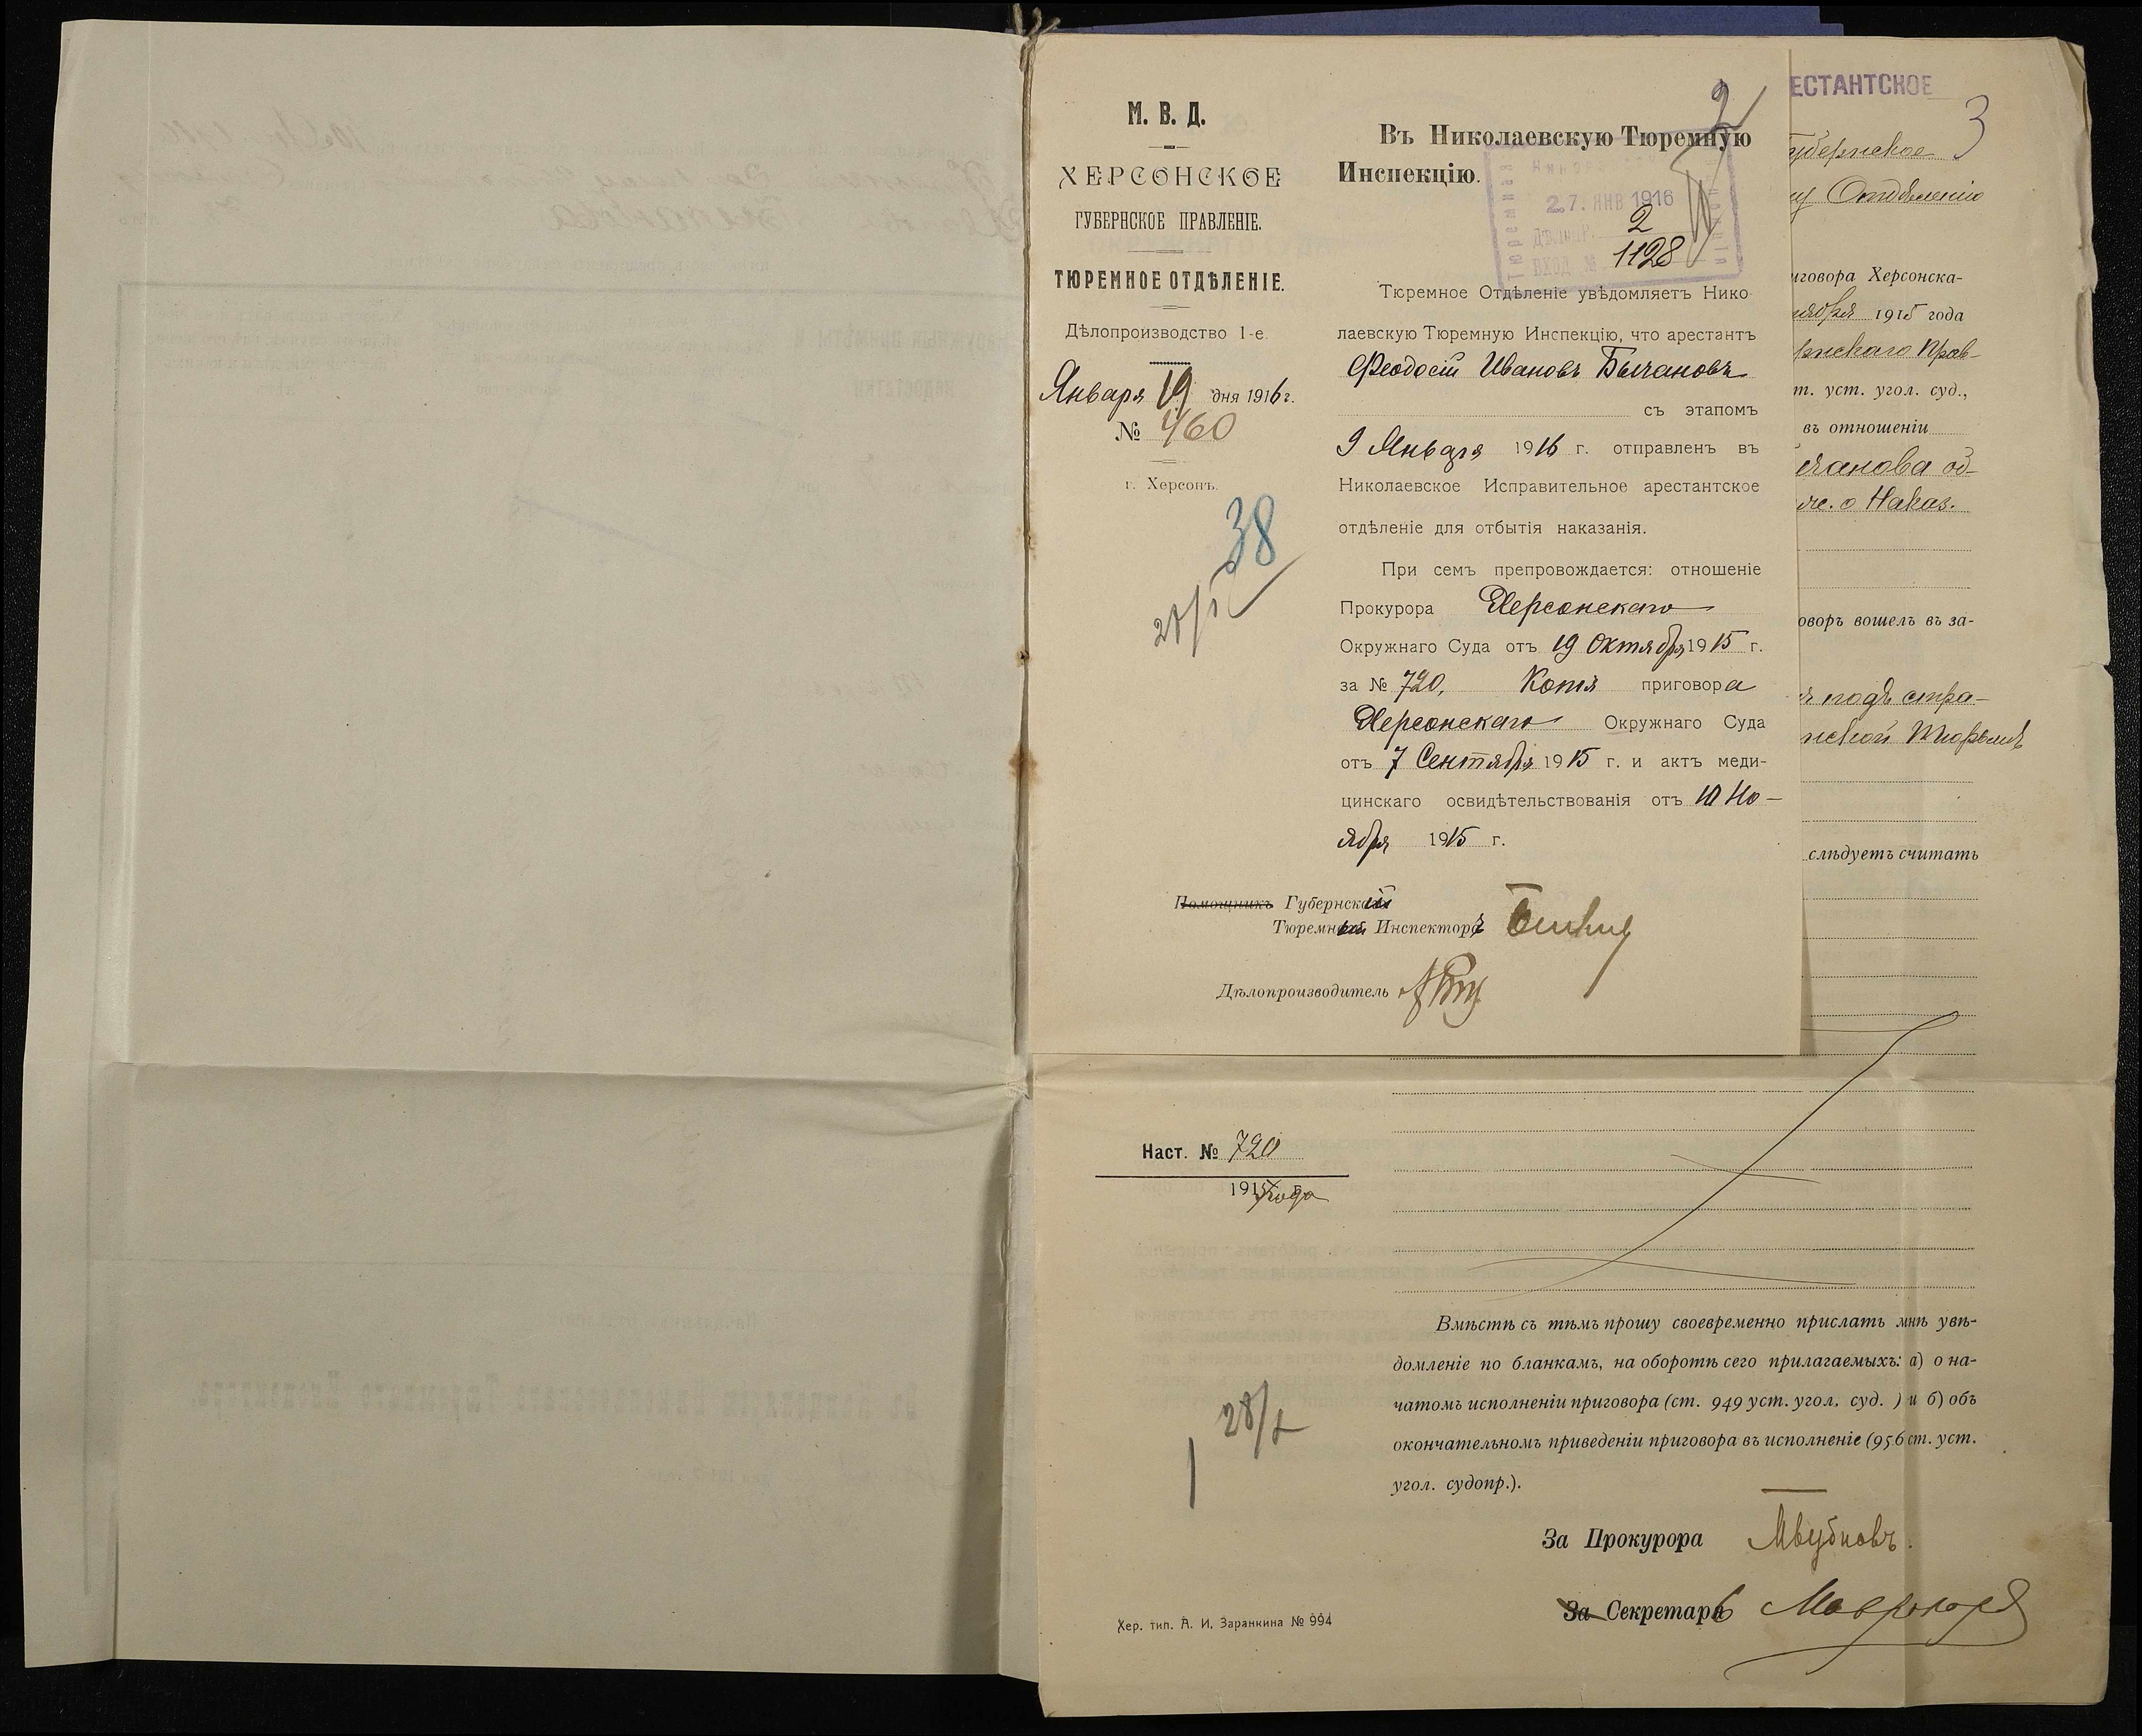 М. В. Д.
ХЕРСОНСКОЕ
ГУБЕРНСКОЕ ПРАВЛЕНІЕ.
ТЮРЕМНОЕ ОТДѢЛЕНІЕ.
Дѣлопроизводство 1-е.
Января 19 дня 1916 г.
№ 460
г. Херсонъ.
38
28/I
2
Въ Николаевскую Тюремную
Инспекцію.
27. ЯНВ 1916
2
ВХОД №
1128
Тюремное Отдѣленіе увѣдомляетъ Нико-
лаевскую Тюремную Инспекцію, что арестантъ
Феодосій Ивановъ Бычановъ
съ этапомъ
9 Января 1916 г. отправленъ въ
Николаевское Исправительное арестантское
отдѣленіе для отбытія наказанія.
При семъ препровождается: отношеніе
Прокурора Херсонскаго
Окружнаго Суда отъ 19 Октября 1915 г.
за № 720, Копія приговора
Херсонскаго Окружнаго Суда
отъ 7 Сентября 1915 г. и актъ меди-
цинскаго освидѣтельствованія отъ 10 Но-
ября 1915 г.
Помощникъ Губернскій
Тюремный Инспекторъ
Дѣлопроизводитель
ЕСТАНТСКОЕ
3
губернское
Отдѣленію
иговора Херсонска-
ября 1915 года
рнскаго Прав-
т. уст. угол. суд.,
въ отношеніи
чанова об-
о Наказ.
оворъ вошелъ въ за-
подъ стра-
нской Тюрьмѣ
слѣдуетъ считать
Наст. № 720
1915 года
28/I
Вмѣстѣ съ тѣмъ прошу своевременно прислать мнѣ увѣ-
домленіе по бланкамъ, на оборотѣ сего прилагаемыхъ: а) о на-
чатомъ исполненіи приговора (ст. 949 уст. угол. суд. ) и б) объ
окончательномъ приведеніи приговора въ исполненіе (956 ст. уст.
угол. судопр.).
За Прокурора
За Секретарь
Хер. тип. А. И. Заранкина № 994